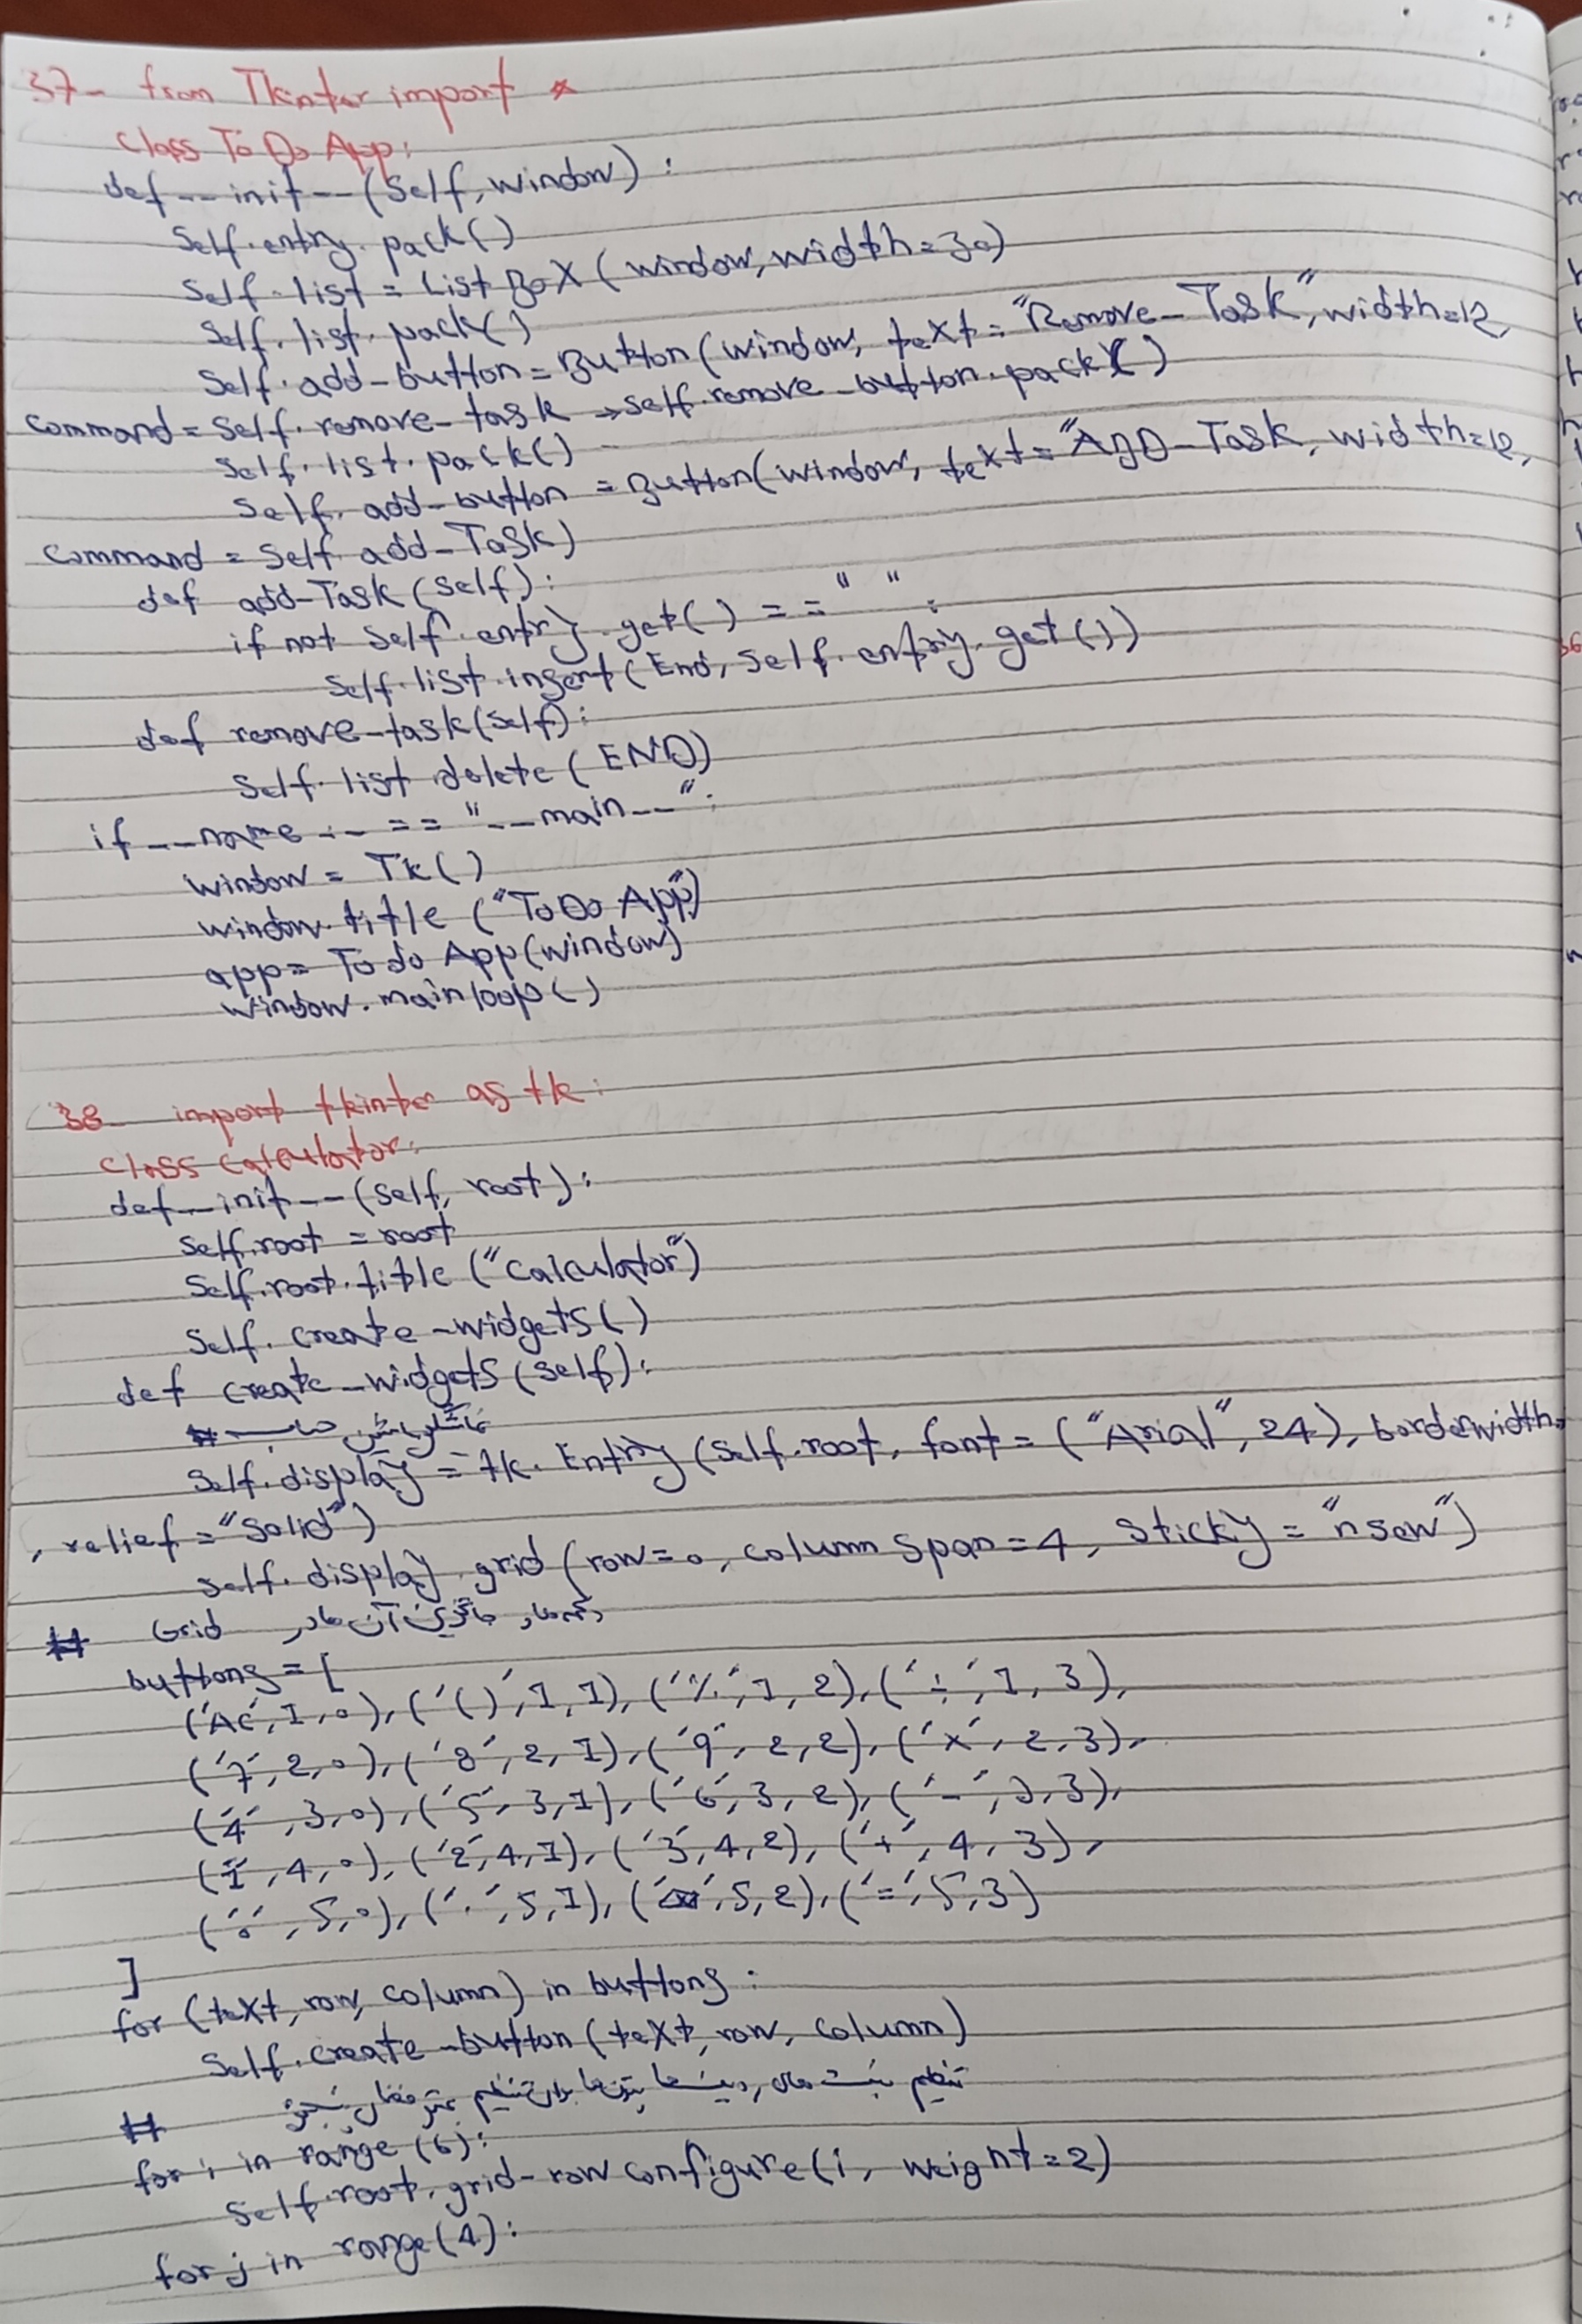 37- from Tkinter import *
class To Do App:
def __init__(self, window):
self.entry.pack()
self.list = List Box (window, width=30)
self.list.pack()
self.add-button = Button (window, text="Remove-Task", width=12,
command = self.remove-task → self.remove-button.pack()
self.list.pack()
self.add-button = Button(window, text="ADD-Task, width=12,
command = self.add-Task)
def add-Task (self):
if not self.entry.get() == " ":
self.list.insert (End, self.entry.get())
def remove-task(self):
self.list.delete (END)
if __name__ == "__main__":
window = Tk()
window.title ("ToDo App")
app = To do App(window)
window.mainloop()
38- import tkinter as tk:
class Calculator:
def __init__(self, root):
self.root = root
self.root.title ("Calculator")
self.create-widgets()
def create-widgets (self):
# نمایشگر ماشین حساب
self.display = tk.Entry (self.root, font = ("Arial", 24), borderwidth=
, relief = "solid")
self.display.grid (row=0, column span=4, sticky = "nsew")
# دکمه‌ها و جایگزین آن‌ها در Grid
buttons = [
('AC', 1, 0), ('()', 1, 1), ('%', 1, 2), ('÷', 1, 3),
('7', 2, 0), ('8', 2, 1), ('9', 2, 2), ('x', 2, 3),
('4', 3, 0), ('5', 3, 1), ('6', 3, 2), ('-', 3, 3),
('1', 4, 0), ('2', 4, 1), ('3', 4, 2), ('+', 4, 3),
('0', 5, 0), ('.', 5, 1), ('⌫', 5, 2), ('=', 5, 3)
]
for (text, row, column) in buttons:
self.create-button (text, row, column)
# تنظیم نسبت های ردیف‌ها ستون‌ها برای تنظیم
for i in range (6):
self.root.grid-row configure (i, weight=2)
for j in range (4):